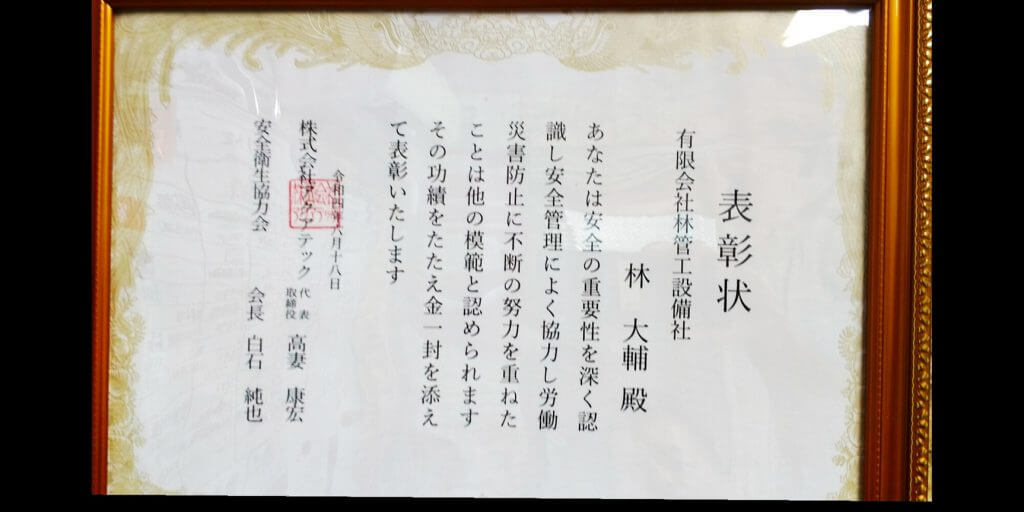 表彰状
有限会社林管工設備社
林 大輔 殿
あなたは安全の重要性を深く認
識し安全管理によく協力し労働
災害防止に不断の努力を重ねた
ことは他の模範と認められます
その功績をたたえ金一封を添え
て表彰いたします
令和四年八月十八日
株式会社アクアテック 代表取締役 高妻 康宏
安全衛生協力会 会長 白石 純也